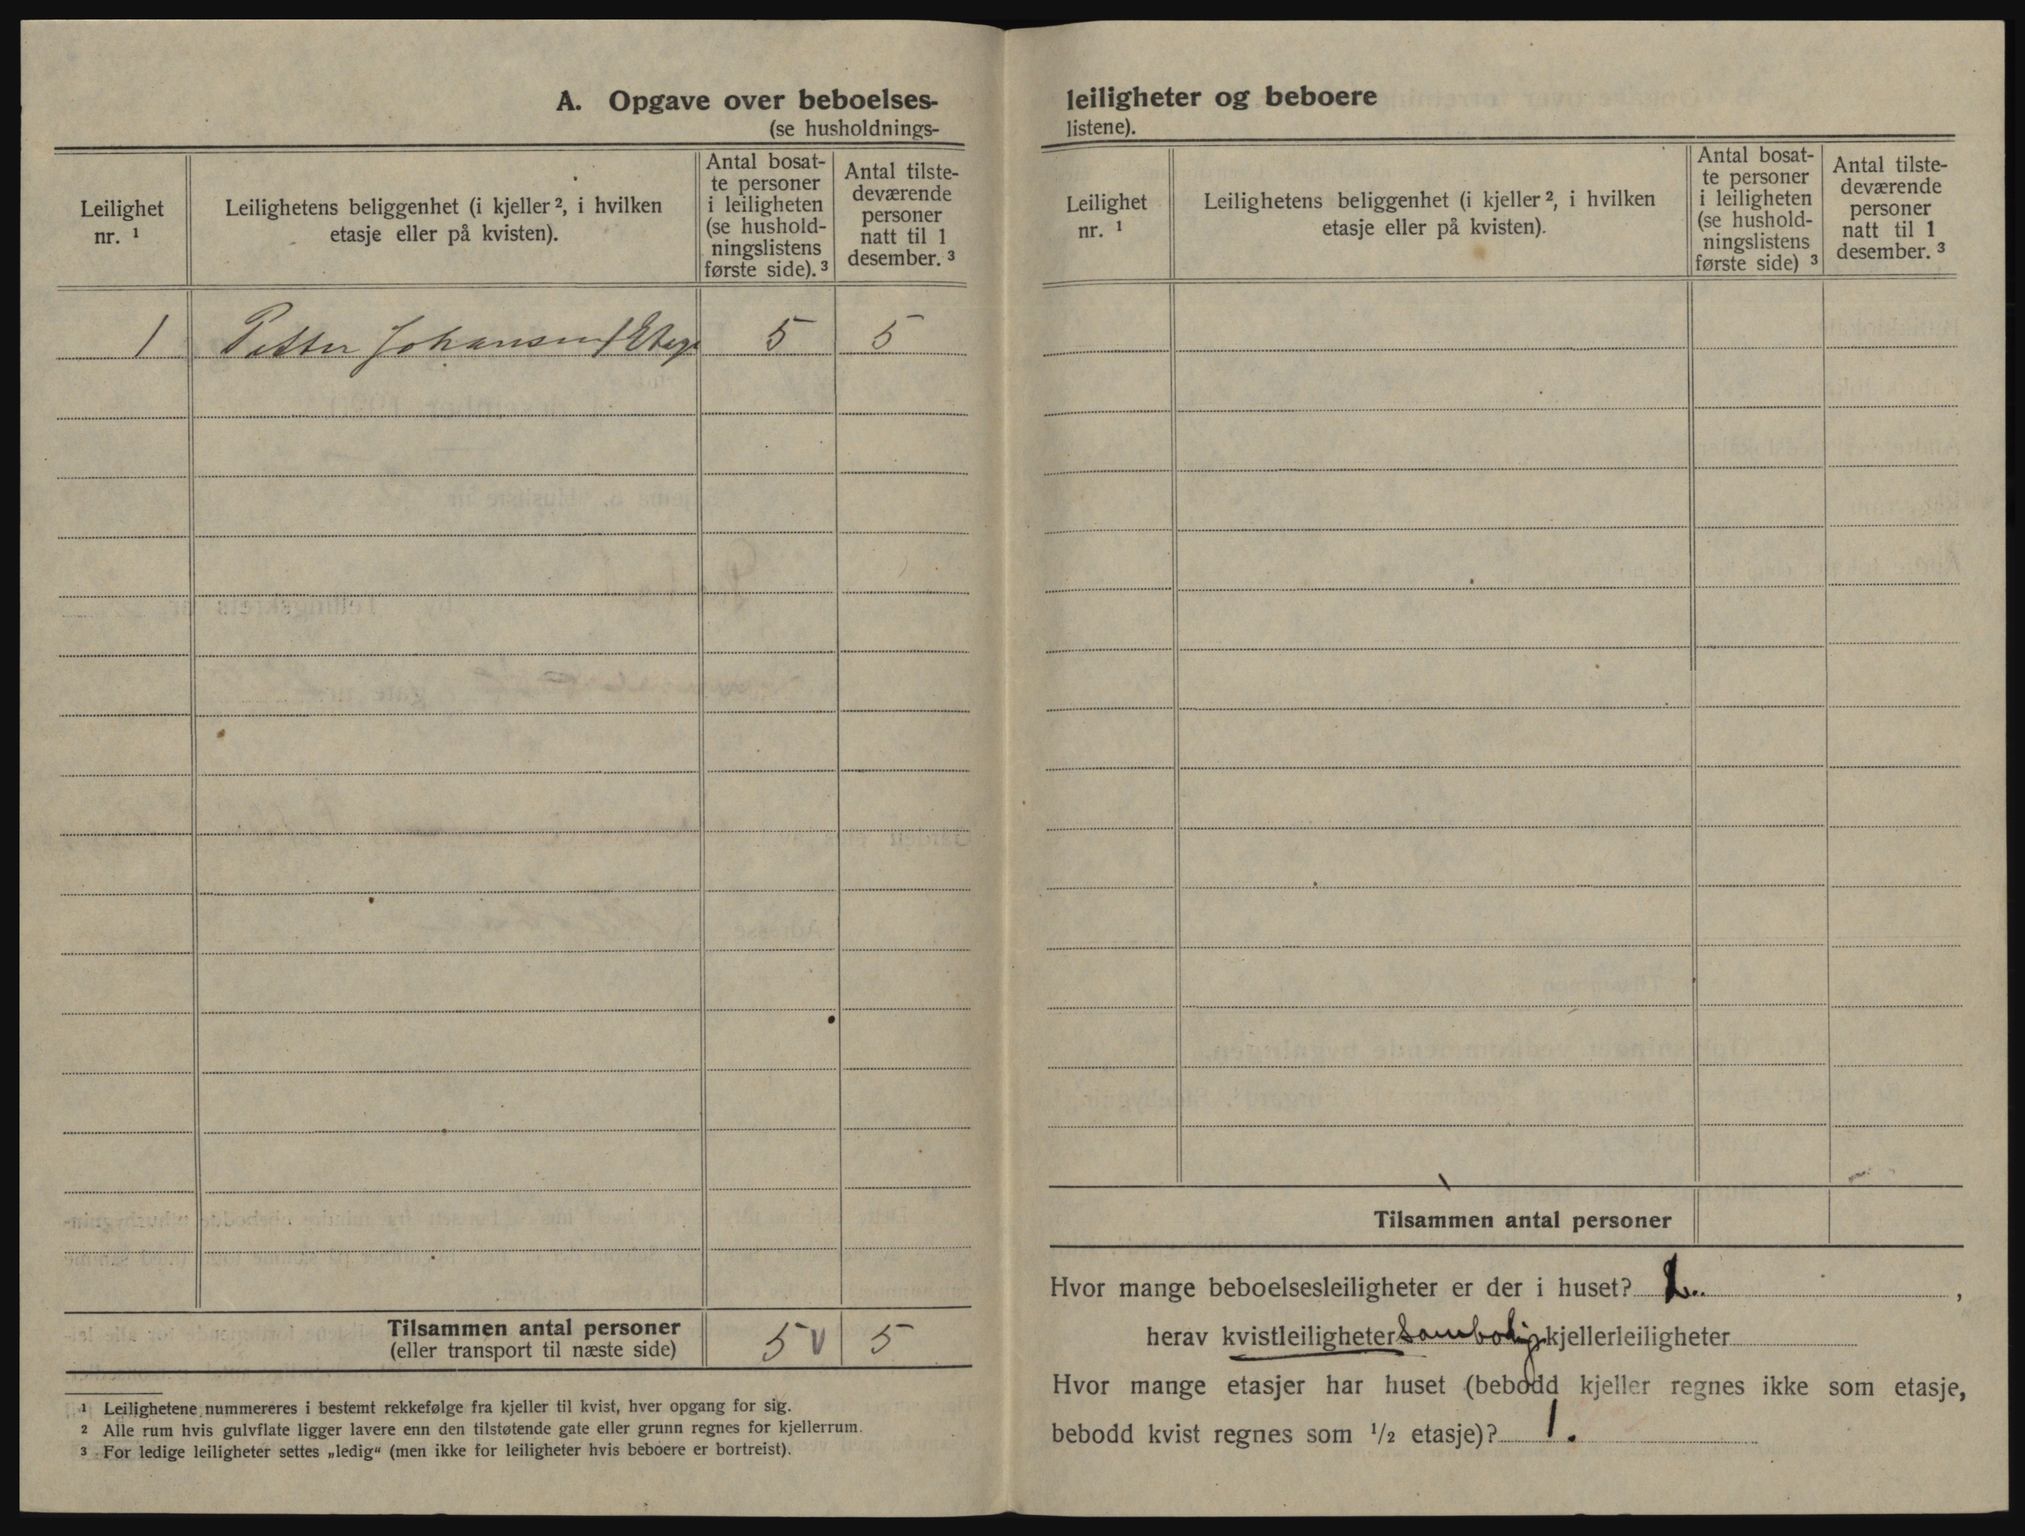 A. Opgave over beboelses-
(se husholdnings-
Leilighet
nr. ¹
Leilighetens beliggenhet (i kjeller ², i hvilken
etasje eller på kvisten).
Antal bosat-
te personer
i leiligheten
(se hushold-
ningslistens
første side). ³
Antal tilste-
deværende
personer
natt til 1
desember. ³
1 Petter Johansen 1 Etage 5 5
Tilsammen antal personer
(eller transport til næste side)
5 v 5
¹ Leilighetene nummereres i bestemt rekkefølge fra kjeller til kvist, hver opgang for sig.
² Alle rum hvis gulvflate ligger lavere enn den tilstøtende gate eller grunn regnes for kjellerrum.
³ For ledige leiligheter settes „ledig“ (men ikke for leiligheter hvis beboere er bortreist).
leiligheter og beboere
listene).
Leilighet
nr. ¹
Leilighetens beliggenhet (i kjeller ², i hvilken
etasje eller på kvisten).
Antal bosat-
te personer
i leiligheten
(se hushold-
ningslistens
første side) ³
Antal tilste-
deværende
personer
natt til 1
desember. ³
Tilsammen antal personer
Hvor mange beboelsesleiligheter er der i huset? ,
herav kvistleiligheter kjellerleiligheter
Hvor mange etasjer har huset (bebodd kjeller regnes ikke som etasje,
bebodd kvist regnes som ½ etasje)? 1.